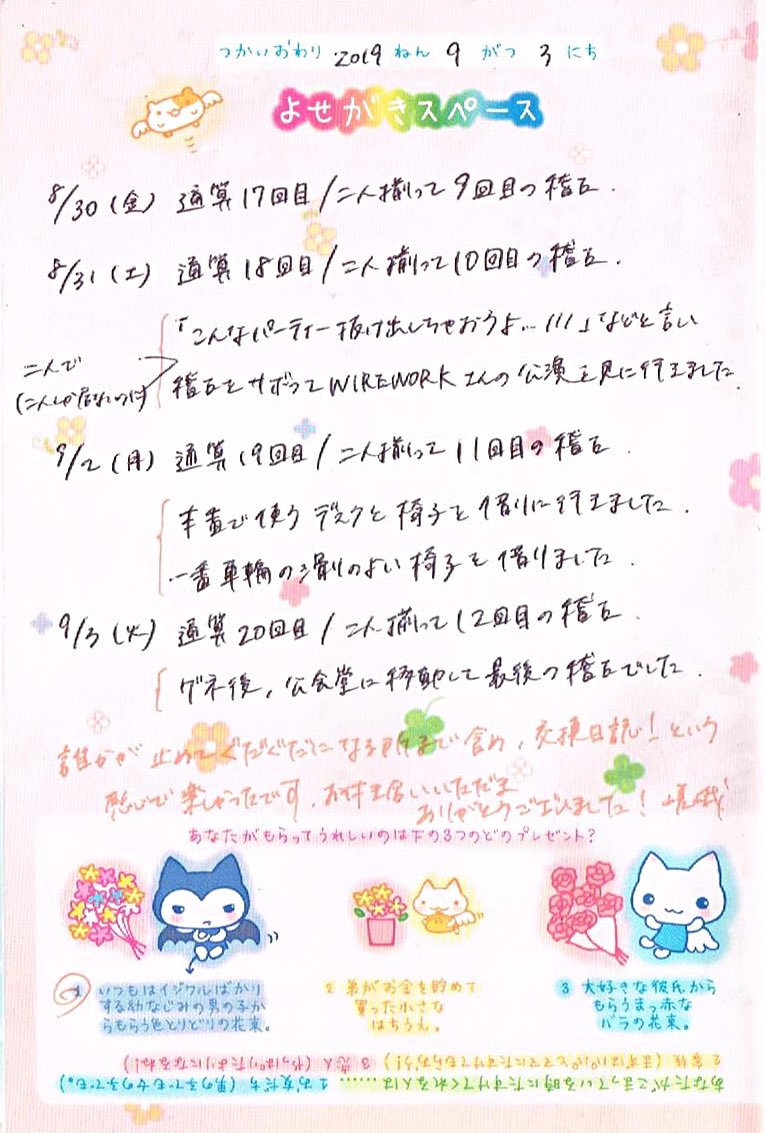 つかいおわり 2019 ねん 9 がつ 3 にち
よせがきスペース
8/30 (金) 通算17回目/二人揃って9回目の稽古.
8/31 (土) 通算18回目/二人揃って10回目の稽古.
「こんなパーティー抜け出しちゃおうよ… ///」などと言い
二人で
(二人しか居ないのに)
稽古をサボってWIREWORKさんの公演を見に行きました.
9/2 (月) 通算19回目/二人揃って11回目の稽古.
本番で使うデスクと椅子を借りに行きました.
一番車輪の滑りのよい椅子を借りました.
9/3 (火) 通算20回目/二人揃って12回目の稽古.
ゲネ後, 公会堂に移動して最後の稽古でした.
誰かが止めてぐだぐだになる所まで含め, 交換日記! という
感じで楽しかったです. お付き合いいただき
ありがとうございました! 嵯峨
あなたがもらってうれしいのは下の3つのどのプレゼント?
1 いつもはイジワルばかり
する幼なじみの男の子か
らもらう色とりどりの花束。
2 弟がお金を貯めて
買った小さな
はちうえ。
3 大好きな彼氏から
もらうまっ赤な
バラの花束。
あなたがこまっている時にたすけてくれる人は……
1 お友だち (男の子でも女の子でも。)
2 家族 (まずはパパとママにたすけてもらおう!) 3 恋人 (やっぱりたよりになるね!)